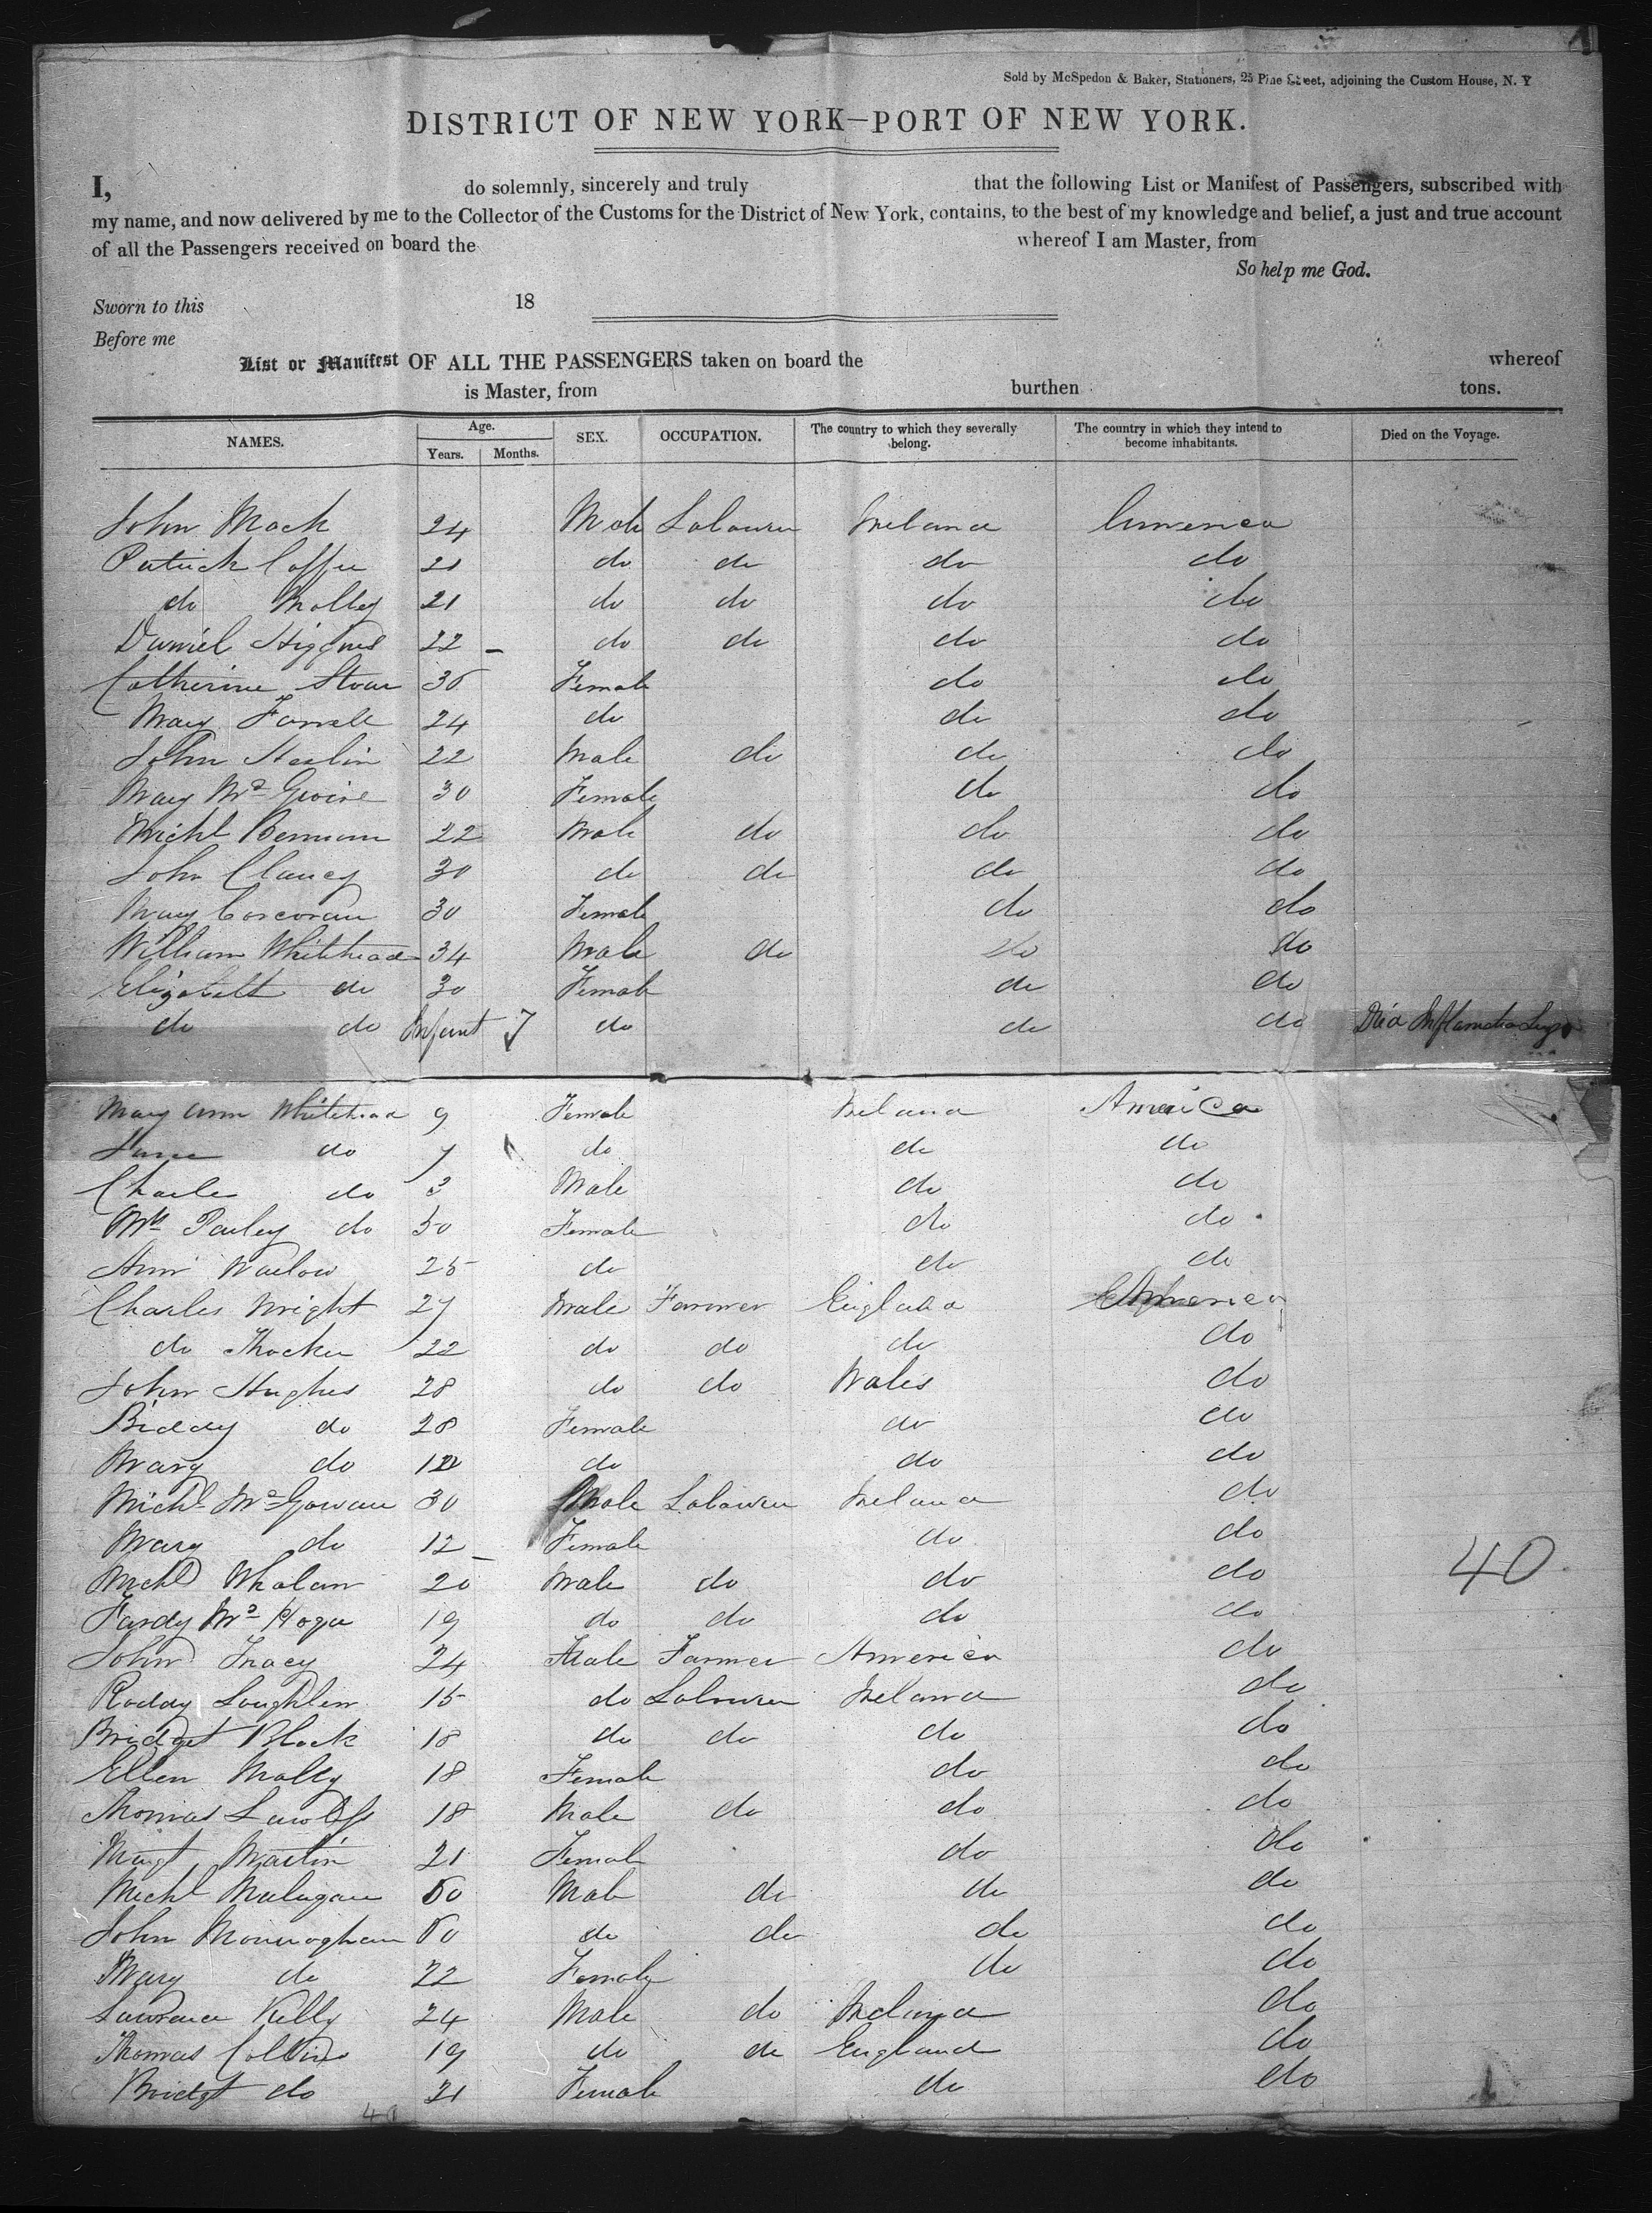 Sold by McSpedon & Baker, Stationers, 25 Pine Street, adjoining the Custom House, N. Y
DISTRICT OF NEW YORK—PORT OF NEW YORK.
I, do solemnly, sincerely and truly that the following List or Manifest of Passengers, subscribed with
my name, and now delivered by me to the Collector of the Customs for the District of New York, contains, to the best of my knowledge and belief, a just and true account
of all the Passengers received on board the whereof I am Master, from
So help me God.
Sworn to this 18
Before me
List or Manifest OF ALL THE PASSENGERS taken on board the whereof
is Master, from burthen tons.
NAMES. Age. Years. Months. SEX. OCCUPATION. The country to which they severally belong. The country in which they intend to become inhabitants. Died on the Voyage.
John Mack 24 Male Labourer Ireland America
Patrick Coffee 21 do do do do
do Molley 21 do do do do
Daniel Higgins 22 - do do do do
Catherine 36 Female do do
Mary Farrell 24 do do do
John Heslin 22 Male do do do
Mary Mc Guire 30 Female do do
Michl Brennan 22 Male do do do
John Clancy 30 do do do do
Mary Corcoran 30 Female do do
William Whitehead 34 Male do do do
Elizabeth do 30 Female do do
do do Infant 7 do do do Died Inflamation Lungs
Mary Ann Whitehead 9 Female Ireland America
Jane do 7 do do do
Charles do 3 Male do do
Mrs Pauley do 50 Female do do
Ann Warlow 25 do do do
Charles Wright 27 Male Farmer England America
do Thocker 22 do do do do
John Hughes 28 do do Wales do
Biddy do 28 Female do do
Mary do 12 do do do
Michl McGowan 30 Male Labourer Ireland do
Mary do 12 - Female do do
Michl Whalan 20 Male do do do
Fardy Mc Hogu 19 do do do do
John Tracey 24 Male Farmer America do
Roddy Loughlin 15 do Labourer Ireland do
Bridget Black 18 do do do do
Ellen Molly 18 Female do do
Thomas Lawless 18 Male do do do
Margt Martin 21 Female do do
Michl Mulugan 50 Male do do do
John Monnoghan 50 do do do do
Mary do 22 Female do do
Lawrence Kelly 24 Male do Ireland do
Thomas Collins 19 do do England do
Bridgt do 21 Female do do
40
40